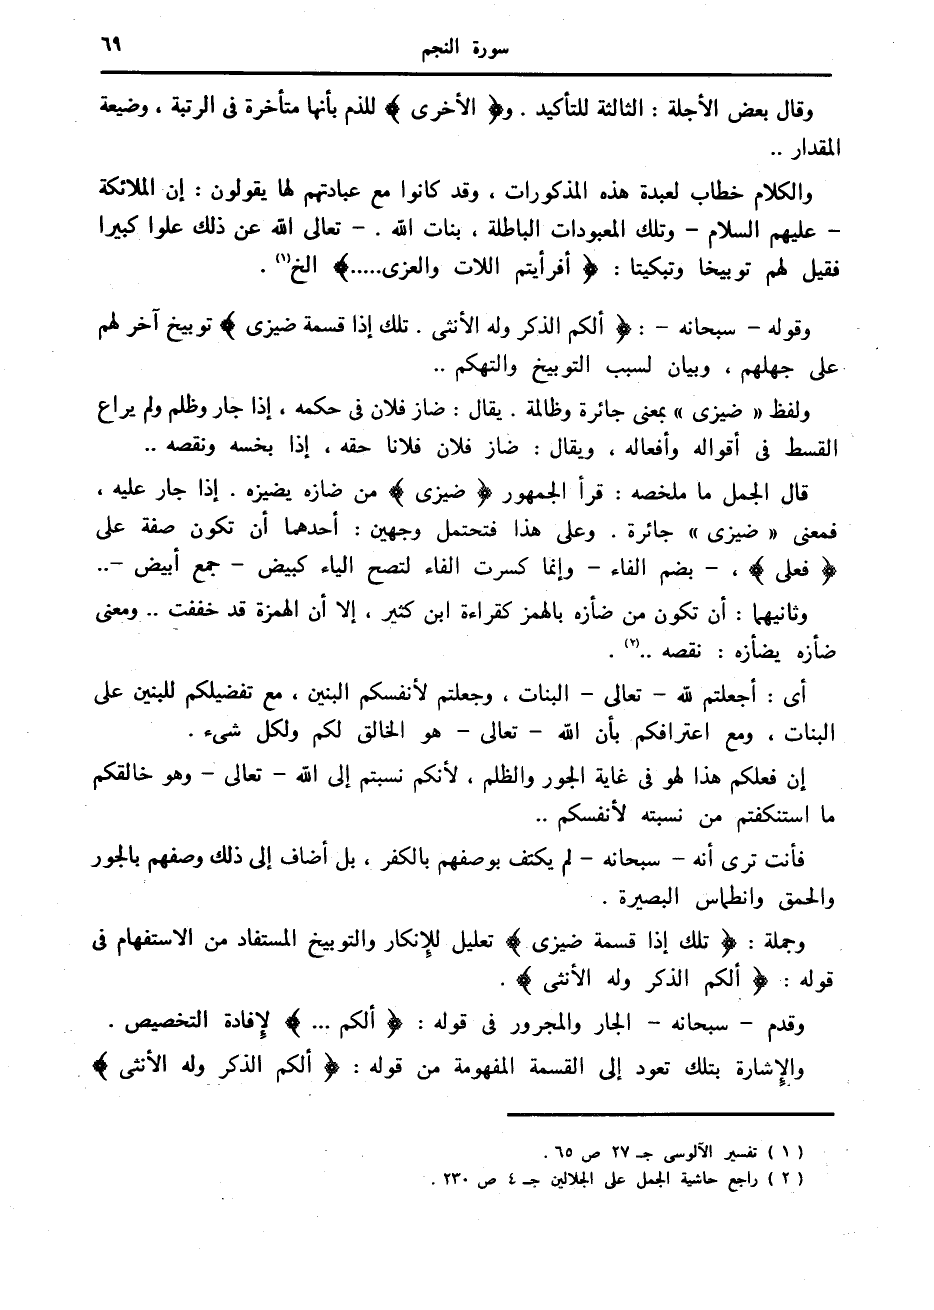 سورة النجم ٦٩
وقال بعض الأجلة : الثالثة للتأكيد . و﴿ الأخرى ﴾ للذم بأنها متأخرة فى الرتبة ، وضيعة
المقدار ..
والكلام خطاب لعبدة هذه المذكورات ، وقد كانوا مع عبادتهم لها يقولون : إن الملائكة
– عليهم السلام – وتلك المعبودات الباطلة ، بنات الله . – تعالى الله عن ذلك علوا كبيرا
فقيل لهم توبيخا وتبكيتا : ﴿ أفرأيتم اللات والعزى.....﴾ الخ(١) .
وقوله – سبحانه – : ﴿ ألكم الذكر وله الأنثى . تلك إذا قسمة ضيزى ﴾ توبيخ آخر لهم
على جهلهم ، وبيان لسبب التوبيخ والتهكم ..
ولفظ « ضيزى » بمعنى جائرة وظالمة . يقال : ضاز فلان فى حكمه ، إذا جار وظلم ولم يراع
القسط فى أقواله وأفعاله ، ويقال : ضاز فلان فلانا حقه ، إذا بخسه ونقصه ..
قال الجمل ما ملخصه : قرأ الجمهور ﴿ ضيزى ﴾ من ضازه يضيزه . إذا جار عليه ،
فمعنى « ضيزى » جائرة . وعلى هذا فتحتمل وجهين : أحدهما أن تكون صفة على
﴿ فعلى ﴾ ، – بضم الفاء – وإنما كسرت الفاء لتصح الياء كبيض – جمع أبيض –..
وثانيهما : أن تكون من ضأزه بالهمز كقراءة ابن كثير ، إلا أن الهمزة قد خففت .. ومعنى
ضأزه يضأزه : نقصه ..(٢) .
أى : أجعلتم لله – تعالى – البنات ، وجعلتم لأنفسكم البنين ، مع تفضيلكم للبنين على
البنات ، ومع اعترافكم بأن الله – تعالى – هو الخالق لكم ولكل شىء .
إن فعلكم هذا لهو فى غاية الجور والظلم ، لأنكم نسبتم إلى الله – تعالى – وهو خالقكم
ما استنكفتم من نسبته لأنفسكم ..
فأنت ترى أنه – سبحانه – لم يكتف بوصفهم بالكفر ، بل أضاف إلى ذلك وصفهم بالجور
والحمق وانطماس البصيرة .
وجملة : ﴿ تلك إذا قسمة ضيزى ﴾ تعليل للإنكار والتوبيخ المستفاد من الاستفهام فى
قوله : ﴿ ألكم الذكر وله الأنثى ﴾ .
وقدم – سبحانه – الجار والمجرور فى قوله : ﴿ ألكم ... ﴾ لإفادة التخصيص .
والإشارة بتلك تعود إلى القسمة المفهومة من قوله : ﴿ ألكم الذكر وله الأنثى ﴾
( ١ ) تفسير الآلوسى جـ ٢٧ ص ٦٥ .
( ٢ ) راجع حاشية الجمل على الجلالين جـ ٤ ص ٢٣٠ .